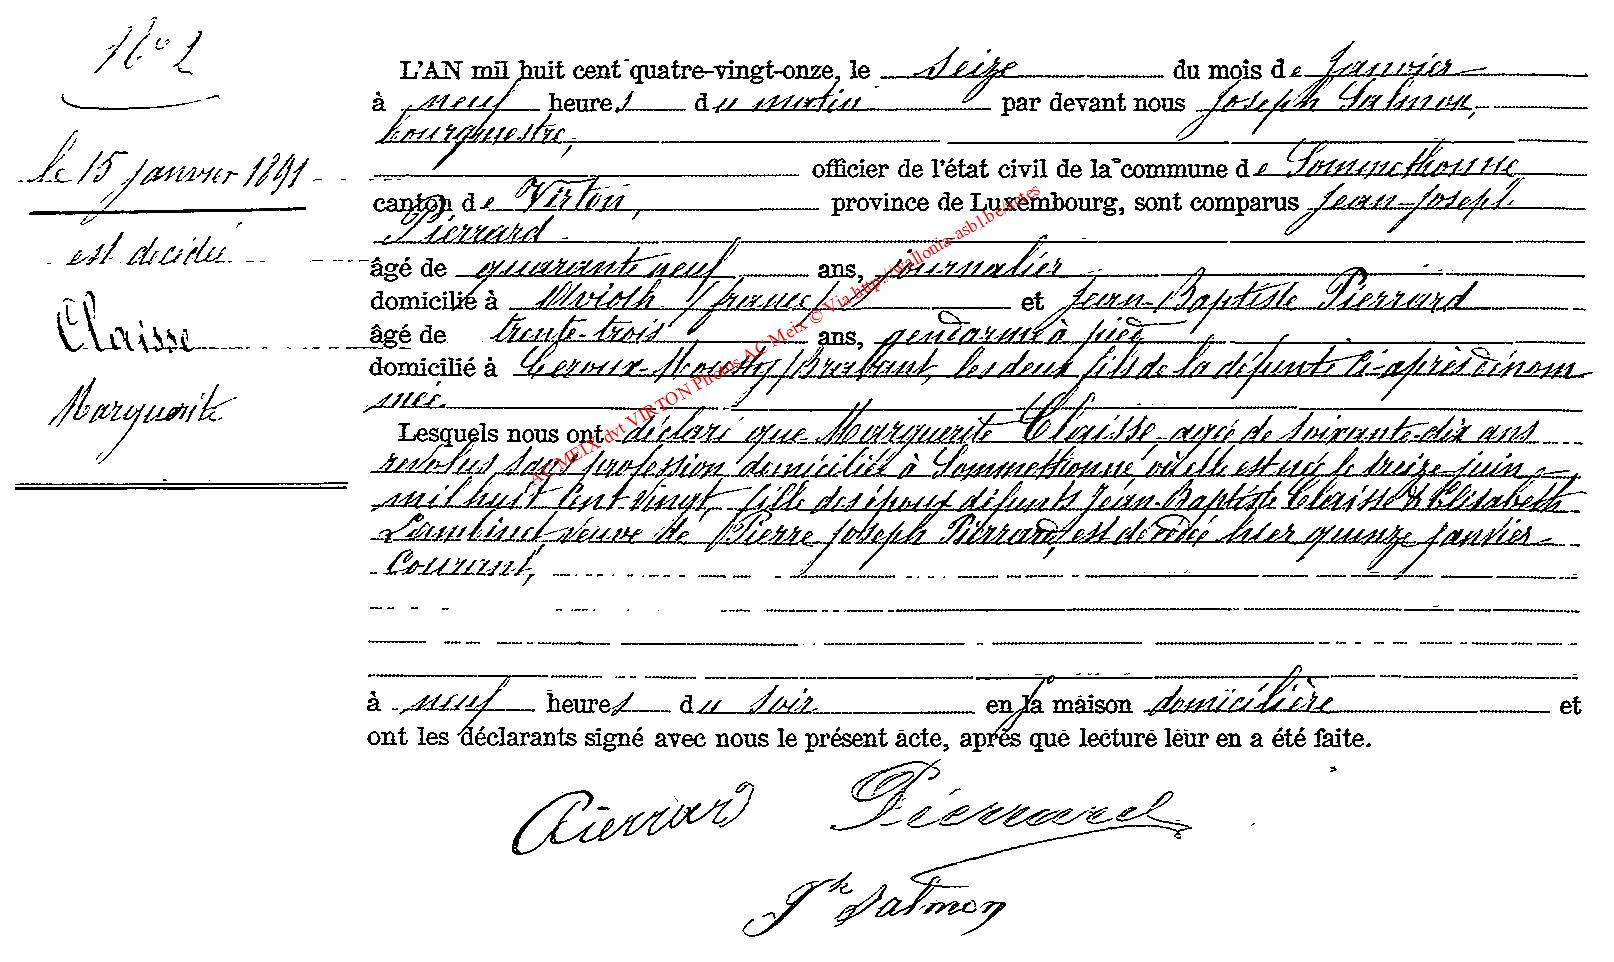 N° 2
le 15 janvier 1891
est décédée
Claisse
Marguerite
L'AN mil huit cent quatre-vingt-onze, le seize du mois de Janvier
à neuf heures du matin par devant nous Joseph Salmon,
bourgmestre,
officier de l'état civil de la commune de Sommethonne
canton de Virton, province de Luxembourg, sont comparus Jean-Joseph
Pierrard
âgé de quarante neuf ans, journalier
domicilié à Avioth (france) et Jean-Baptiste Pierrard
âgé de trente-trois ans, gendarme à pied
domicilié à Ceroux-Mousty (Brabant, les deux fils de la défunte ci-après dénom
mée.
Lesquels nous ont déclaré que Marguerite Claisse, agée de soixante-dix ans
révolus sans profession, domiciliée à Sommethonne, où elle est née le treize juin
mil huit cent vingt, fille des époux défunts Jean-Baptiste Claisse & Elisabeth
Lambinet, veuve de Pierre Joseph Pierrard, est décédée hier quinze janvier
courant,
à neuf heures du soir en la maison domicilière et
ont les déclarants signé avec nous le présent acte, après que lecture leur en a été faite.
Pierrard Pierrard
Jh Salmon
AC MEIX dvt VIRTON Photos AC Meix © Via http://wallonia-asbl.be/actes